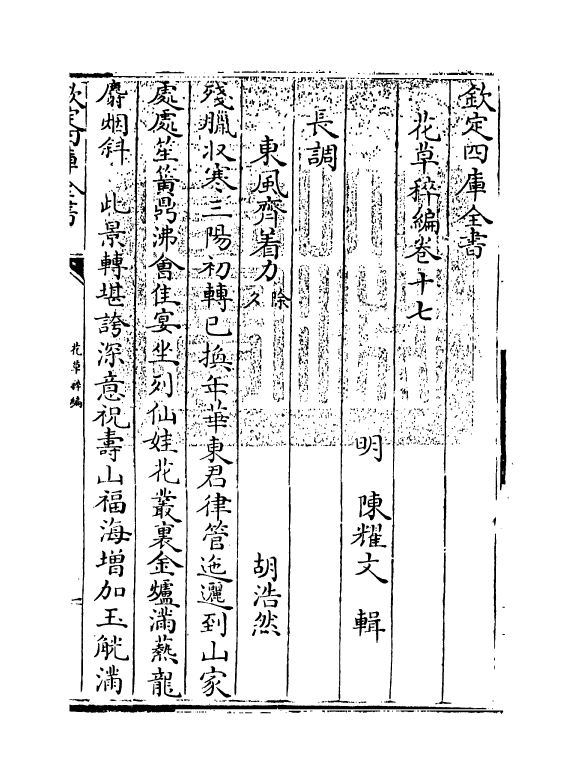 欽定四庫全書
花草稡編卷十七
明 陳耀文 輯
長調
東風齊着力 除夕 胡浩然
殘臘收寒三陽初轉已換年華東君律管迤邐到山家
處處笙簧鼎沸會佳宴坐列仙娃花叢裏金爐滿爇龍
麝烟斜 此景轉堪誇深意祝壽山福海增加玉觥滿
欽定四庫全書
花草稡編
一